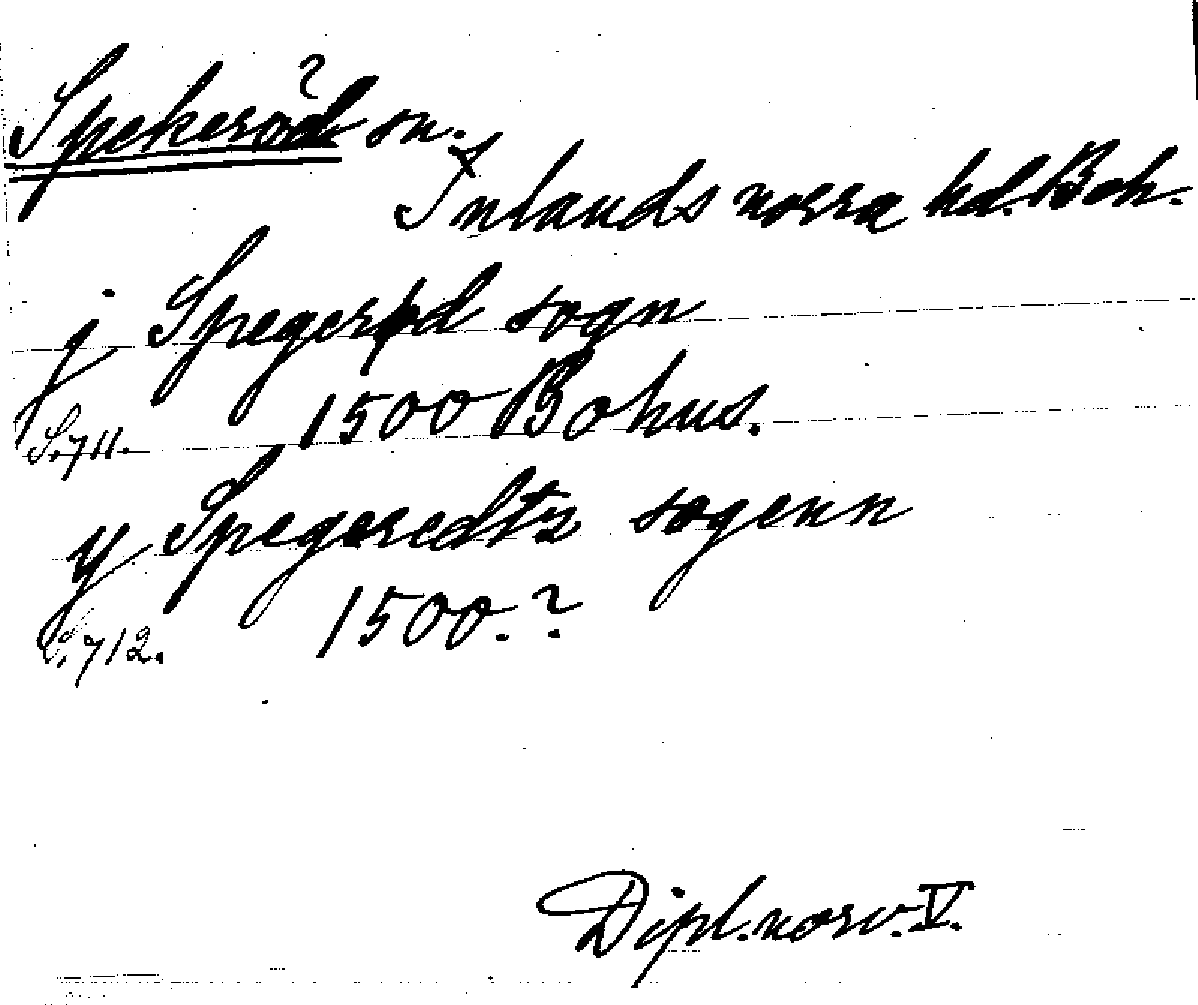 ?
Spekeröd sn.
Inlands norra hd. Boh.
j Spegerød sogn
S. 711. 1500 Bohus.
y Spegeredtz sogenn
S. 712. 1500.?
Dipl. norv. V.